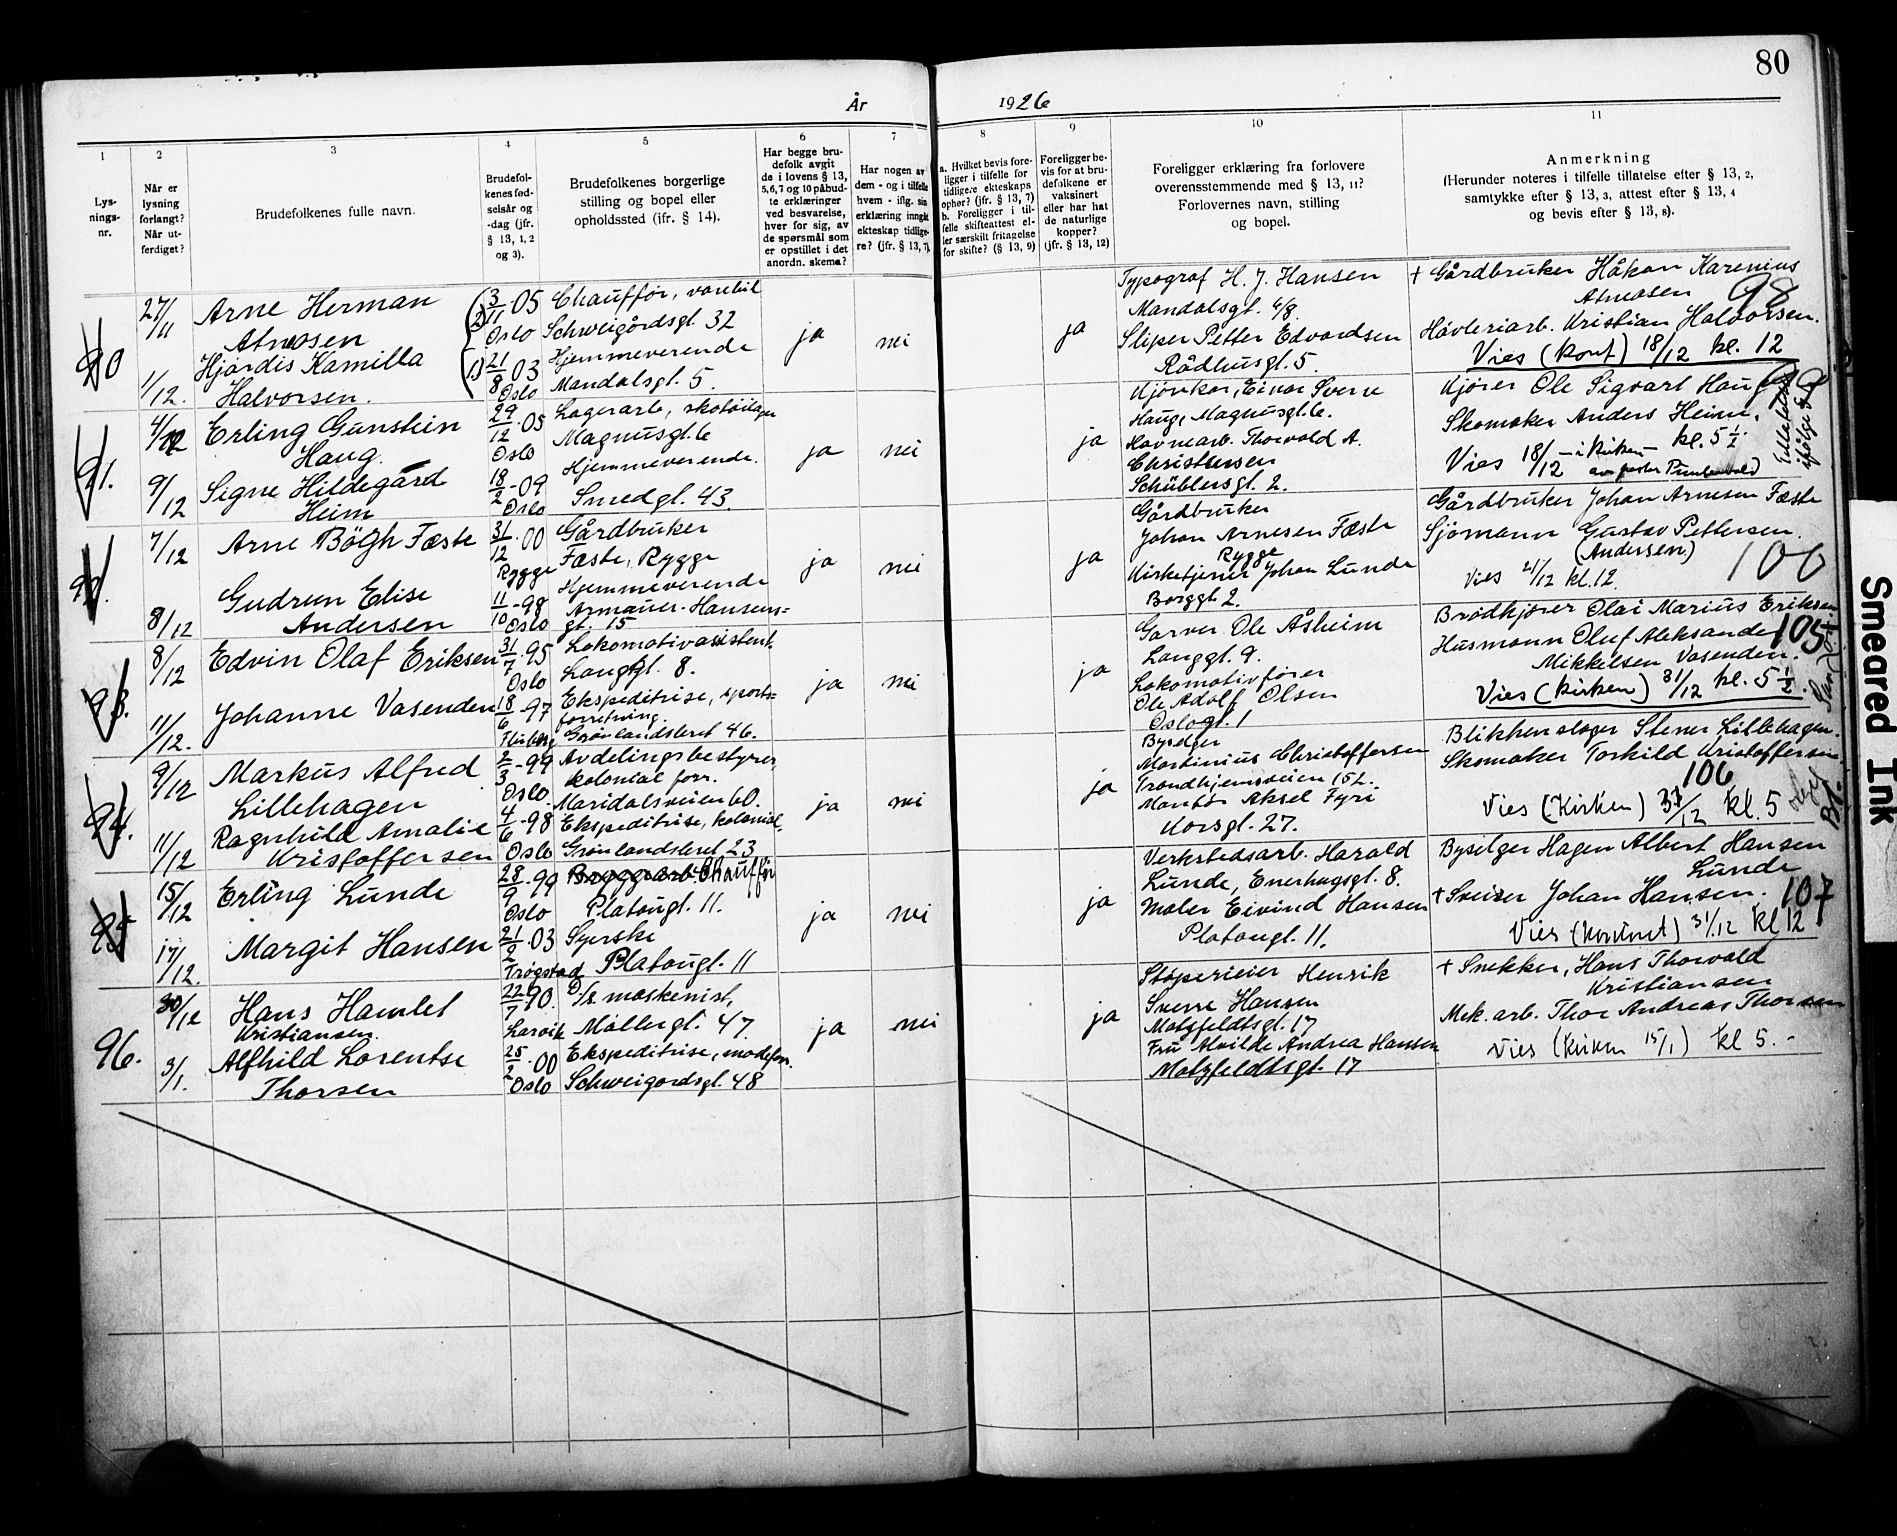 80
År 1926
1
Lys-
nings-
nr.
2
Når er
lysning
forlangt?
Når ut-
ferdiget?
3
Brudefolkenes fulle navn.
4
Brudefol-
kenes fød-
selsår og
-dag (jfr.
§ 13, 1, 2
og 3).
5
Brudefolkenes borgerlige
stilling og bopel eller
opholdssted (jfr. § 14).
6
Har begge bru-
defolk avgit
de i lovens § 13,
5,6,7 og 10 påbud-
te erklæringer
ved besvarelse,
hver for sig, av
de spørsmål som
er opstillet i det
anordn. skema?
7
Har nogen av
dem - og i tilfelle
hvem - iflg. sin
erklæring inngått
ekteskap tidlige-
re? (jfr. § 13, 7)
8
a. Hvilket bevis fore-
ligger i tilfelle for
tidligere ekteskaps
ophør? (jfr. § 13, 7)
b. Foreligger i til-
felle skifteattest el-
ler særskilt fritagelse
for skifte? (§ 13, 9)
9
Foreligger be-
vis for at bru-
defolkene er
vaksinert
eller har hat
de naturlige
kopper?
(jfr. § 13, 12)
10
Foreligger erklæring fra forlovere
overensstemmende med § 13, 11?
Forlovernes navn, stilling
og bopel.
11
Anmerkning
(Herunder noteres i tilfelle tillatelse efter § 13, 2,
samtykke efter § 13, 3, attest efter § 13, 4
og bevis efter § 13, 8).
90
27/11
1/12.
Arne Herman
Atneosen
Hjørdis Kamilla
Halvorsen.
(2) 3/11 05
Oslo
(1) 21/8 03
Oslo
Chauffør, varebil
Schweigårdsgt. 32
Hjemmeverende
Mandalsgt. 5.
ja
nei
ja
Typograf H. J. Hansen
Mandalsgt. 6/8.
Sliper Petter Edvardsen
Rådhusgt. 5.
+ Gårdbruker Håkon Karenius
Atneosen
98
Høvleriarb. Kristian Halvorsen.
Vies (kont) 18/12 kl. 12
91.
4/12
9/12
Erling Gunstein
Haug.
Signe Hildegård
Heim
29/12 05
Oslo
18/2 - 09
Oslo
Lagerarb, skotøilager
Magnusgt. 6
Hjemmeverende.
Smedgt. 43.
ja
nei
ja
Haug, Magnusgt. 6.
Havnearb. Thorvald A.
Christensen
Schüblersgt. 2.
Kjører Ole Sigvart Haug
99
Skomaker Anders Heim.
Vies 18/12 - i kirken - kl. 5 1/2
92.
7/12
8/12
Arne Bögh Fæste
Gudrun Elise
Andersen
31/12 00
Rygge
11/10 - 98
Oslo
Gårdbruker
Fæste, Rygge
Hjemmeverende
Armauer-Hansens-
gt. 15
ja
nei
ja
Gårdbruker
Johan Arnesen Fæste
Rygge
Kirketjener Johan Lunde
Borggt 2.
Gårdbruker Johan Arnesen Fæste
Sjømann Gustav Pettersen.
(Andersen)
100
Vies 21/12 kl. 12.
93.
8/12
11/12.
Edvin Olaf Eriksen
Johanne Vasenden
31/7 95
Oslo
18/6 - 97
Lokomotivassistent.
Langgt. 8.
Ekspeditrise, sports-
forretning.
Grønlandsleret 46.
ja
nei
ja
Garver Ole Åsheim
Langgt. 9.
Lokomotivfører
Ole Adolf Olsen
Oslogt. 1
Brødkjører Olai Marius Eriksen
105
Husmann Oluf Aleksander
Mikkelsen Vasenden.
Vies (kirken) 31/12 kl. 5 1/2.
94.
9/12
11/12
Markus Alfred
Lillehagen
Ragnhild Amalie
Kristoffersen
2/3 - 99
Oslo
4/6 - 98
Oslo
Avdelingsbestyrer,
kolonial forr.
Maridalsveien 60.
Ekspeditrise, kolonial,
Grønlandsleret 23
ja
nei
ja
Byselger
Martinius Christoffersen
Trondhjemsveien 152.
Montør Aksel Fyri
Korsgt. 27.
Blikkenslager Stener Lillehagen.
Skomaker Torkild Kristoffersen
106
Vies (Kirken) 31/12 kl. 5
95
15/12
17/12.
Erling Lunde
Margit Hansen
28/9 99
Oslo
21/2 03
Trøgstad
Bryggearb. Chauffør
Platougt. 11.
Syerske
Platougt. 11
ja
nei
ja
Verkstedsarb. Harald
Lunde, Enerhaugsgt. 8.
Maler Eivind Hansen
Platougt. 11.
Byselger Hagen Albert Hansen
Lunde
+ Sveiser Johan Hansen.
107
Vies (kontoret) 31/12 kl 12
96.
30/12
3/1.
Hans Hamlet
Kristiansen
Alfhild Lorentse
Thorsen
22/7 90.
Larvik
25/2 00
Oslo
D/s. maskenist,
Møllergt. 47
Ekspeditrise, modeforr.
Schweigårdsgt. 48
ja
nei
ja
Støperieier Henrik
Sverre Hansen
Motzfeldtsgt. 17
Fru Mvilde Andrea Hansen
Motzfeldtsgt. 17
+ Snekker, Hans Thorvald
Kristiansen
Mek. arb. Thor Andreas Thorsen
Vies (kirken 15/1) kl 5. -
Smeared Ink